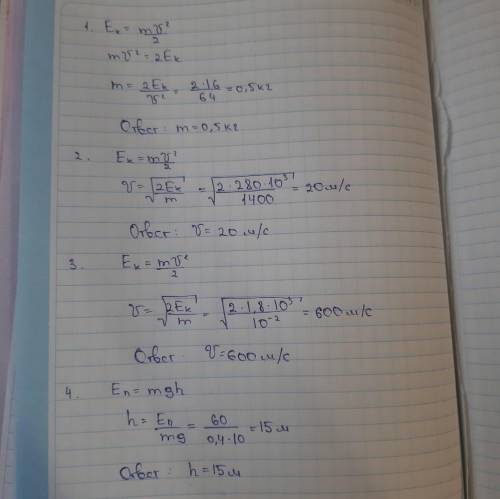 1. Eₖ = mv²/2
mv² = 2Eₖ
m = 2Eₖ/v² = 2·16/64 = 0,5 кг
Ответ: m = 0,5 кг
2. Eₖ = mv²/2
v = √(2Eₖ/m) = √(2·280·10³/1400) = 20 м/с
Ответ: v = 20 м/с
3. Eₖ = mv²/2
v = √(2Eₖ/m) = √(2·1,8·10³/10⁻²) = 600 м/с
Ответ: v = 600 м/с
4. Eп = mgh
h = Eп/mg = 60/0,4·10 = 15 м
Ответ: h = 15 м